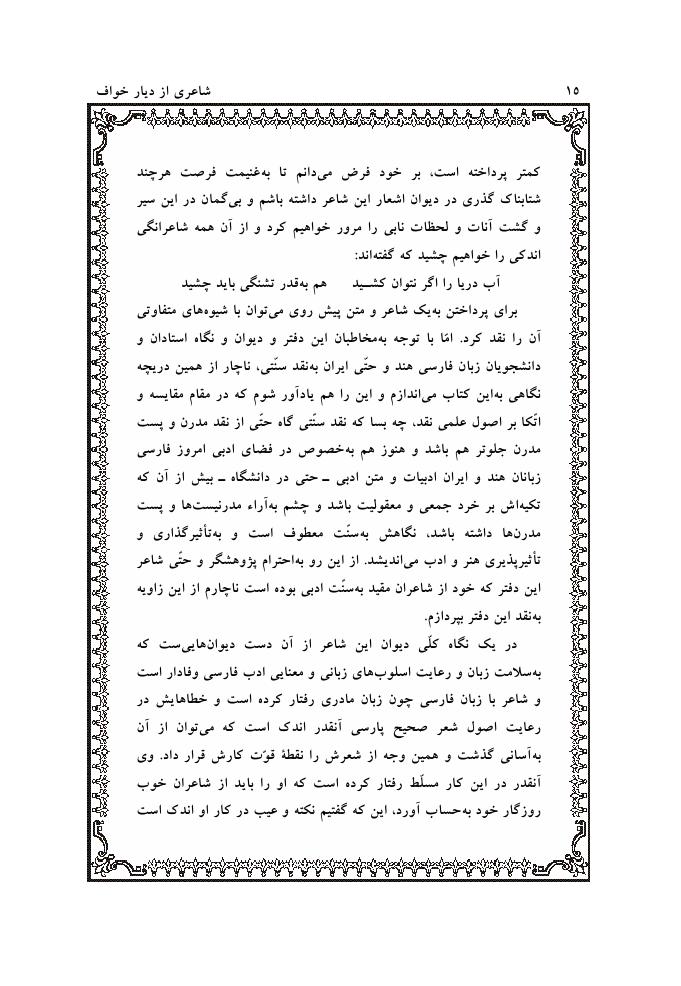 ۱۵ شاعری از دیار خواف
کمتر پرداخته است، بر خود فرض می‌دانم تا به‌غنیمت فرصت هرچند
شتابناک گذری در دیوان اشعار این شاعر داشته باشم و بی‌گمان در این سیر
و گشت آنات و لحظات نابی را مرور خواهیم کرد و از آن همه شاعرانگی
اندکی را خواهیم چشید که گفته‌اند:
آب دریا را اگر نتوان کشـــید هم به‌قدر تشنگی باید چشید
برای پرداختن به‌یک شاعر و متن پیش روی می‌توان با شیوه‌های متفاوتی
آن را نقد کرد. امّا با توجه به‌مخاطبان این دفتر و دیوان و نگاه استادان و
دانشجویان زبان فارسی هند و حتّی ایران به‌نقد سنّتی، ناچار از همین دریچه
نگاهی به‌این کتاب می‌اندازم و این را هم یادآور شوم که در مقام مقایسه و
اتّکا بر اصول علمی نقد، چه بسا که نقد سنّتی گاه حتّی از نقد مدرن و پست
مدرن جلوتر هم باشد و هنوز هم به‌خصوص در فضای ادبی امروز فارسی
زبانان هند و ایران ادبیات و متن ادبی ـ حتی در دانشگاه ـ بیش از آن که
تکیه‌اش بر خرد جمعی و معقولیت باشد و چشم به‌آراء مدرنیست‌ها و پست
مدرن‌ها داشته باشد، نگاهش به‌سنّت معطوف است و به‌تأثیرگذاری و
تأثیرپذیری هنر و ادب می‌اندیشد. از این رو به‌احترام پژوهشگر و حتّی شاعر
این دفتر که خود از شاعران مقید به‌سنّت ادبی بوده است ناچارم از این زاویه
به‌نقد این دفتر بپردازم.
در یک نگاه کلّی دیوان این شاعر از آن دست دیوان‌هایی‌ست که
به‌سلامت زبان و رعایت اسلوب‌های زبانی و معنایی ادب فارسی وفادار است
و شاعر با زبان فارسی چون زبان مادری رفتار کرده است و خطاهایش در
رعایت اصول شعر صحیح پارسی آنقدر اندک است که می‌توان از آن
به‌آسانی گذشت و همین وجه از شعرش را نقطهٔ قوّت کارش قرار داد. وی
آنقدر در این کار مسلّط رفتار کرده است که او را باید از شاعران خوب
روزگار خود به‌حساب آورد، این که گفتیم نکته و عیب در کار او اندک است